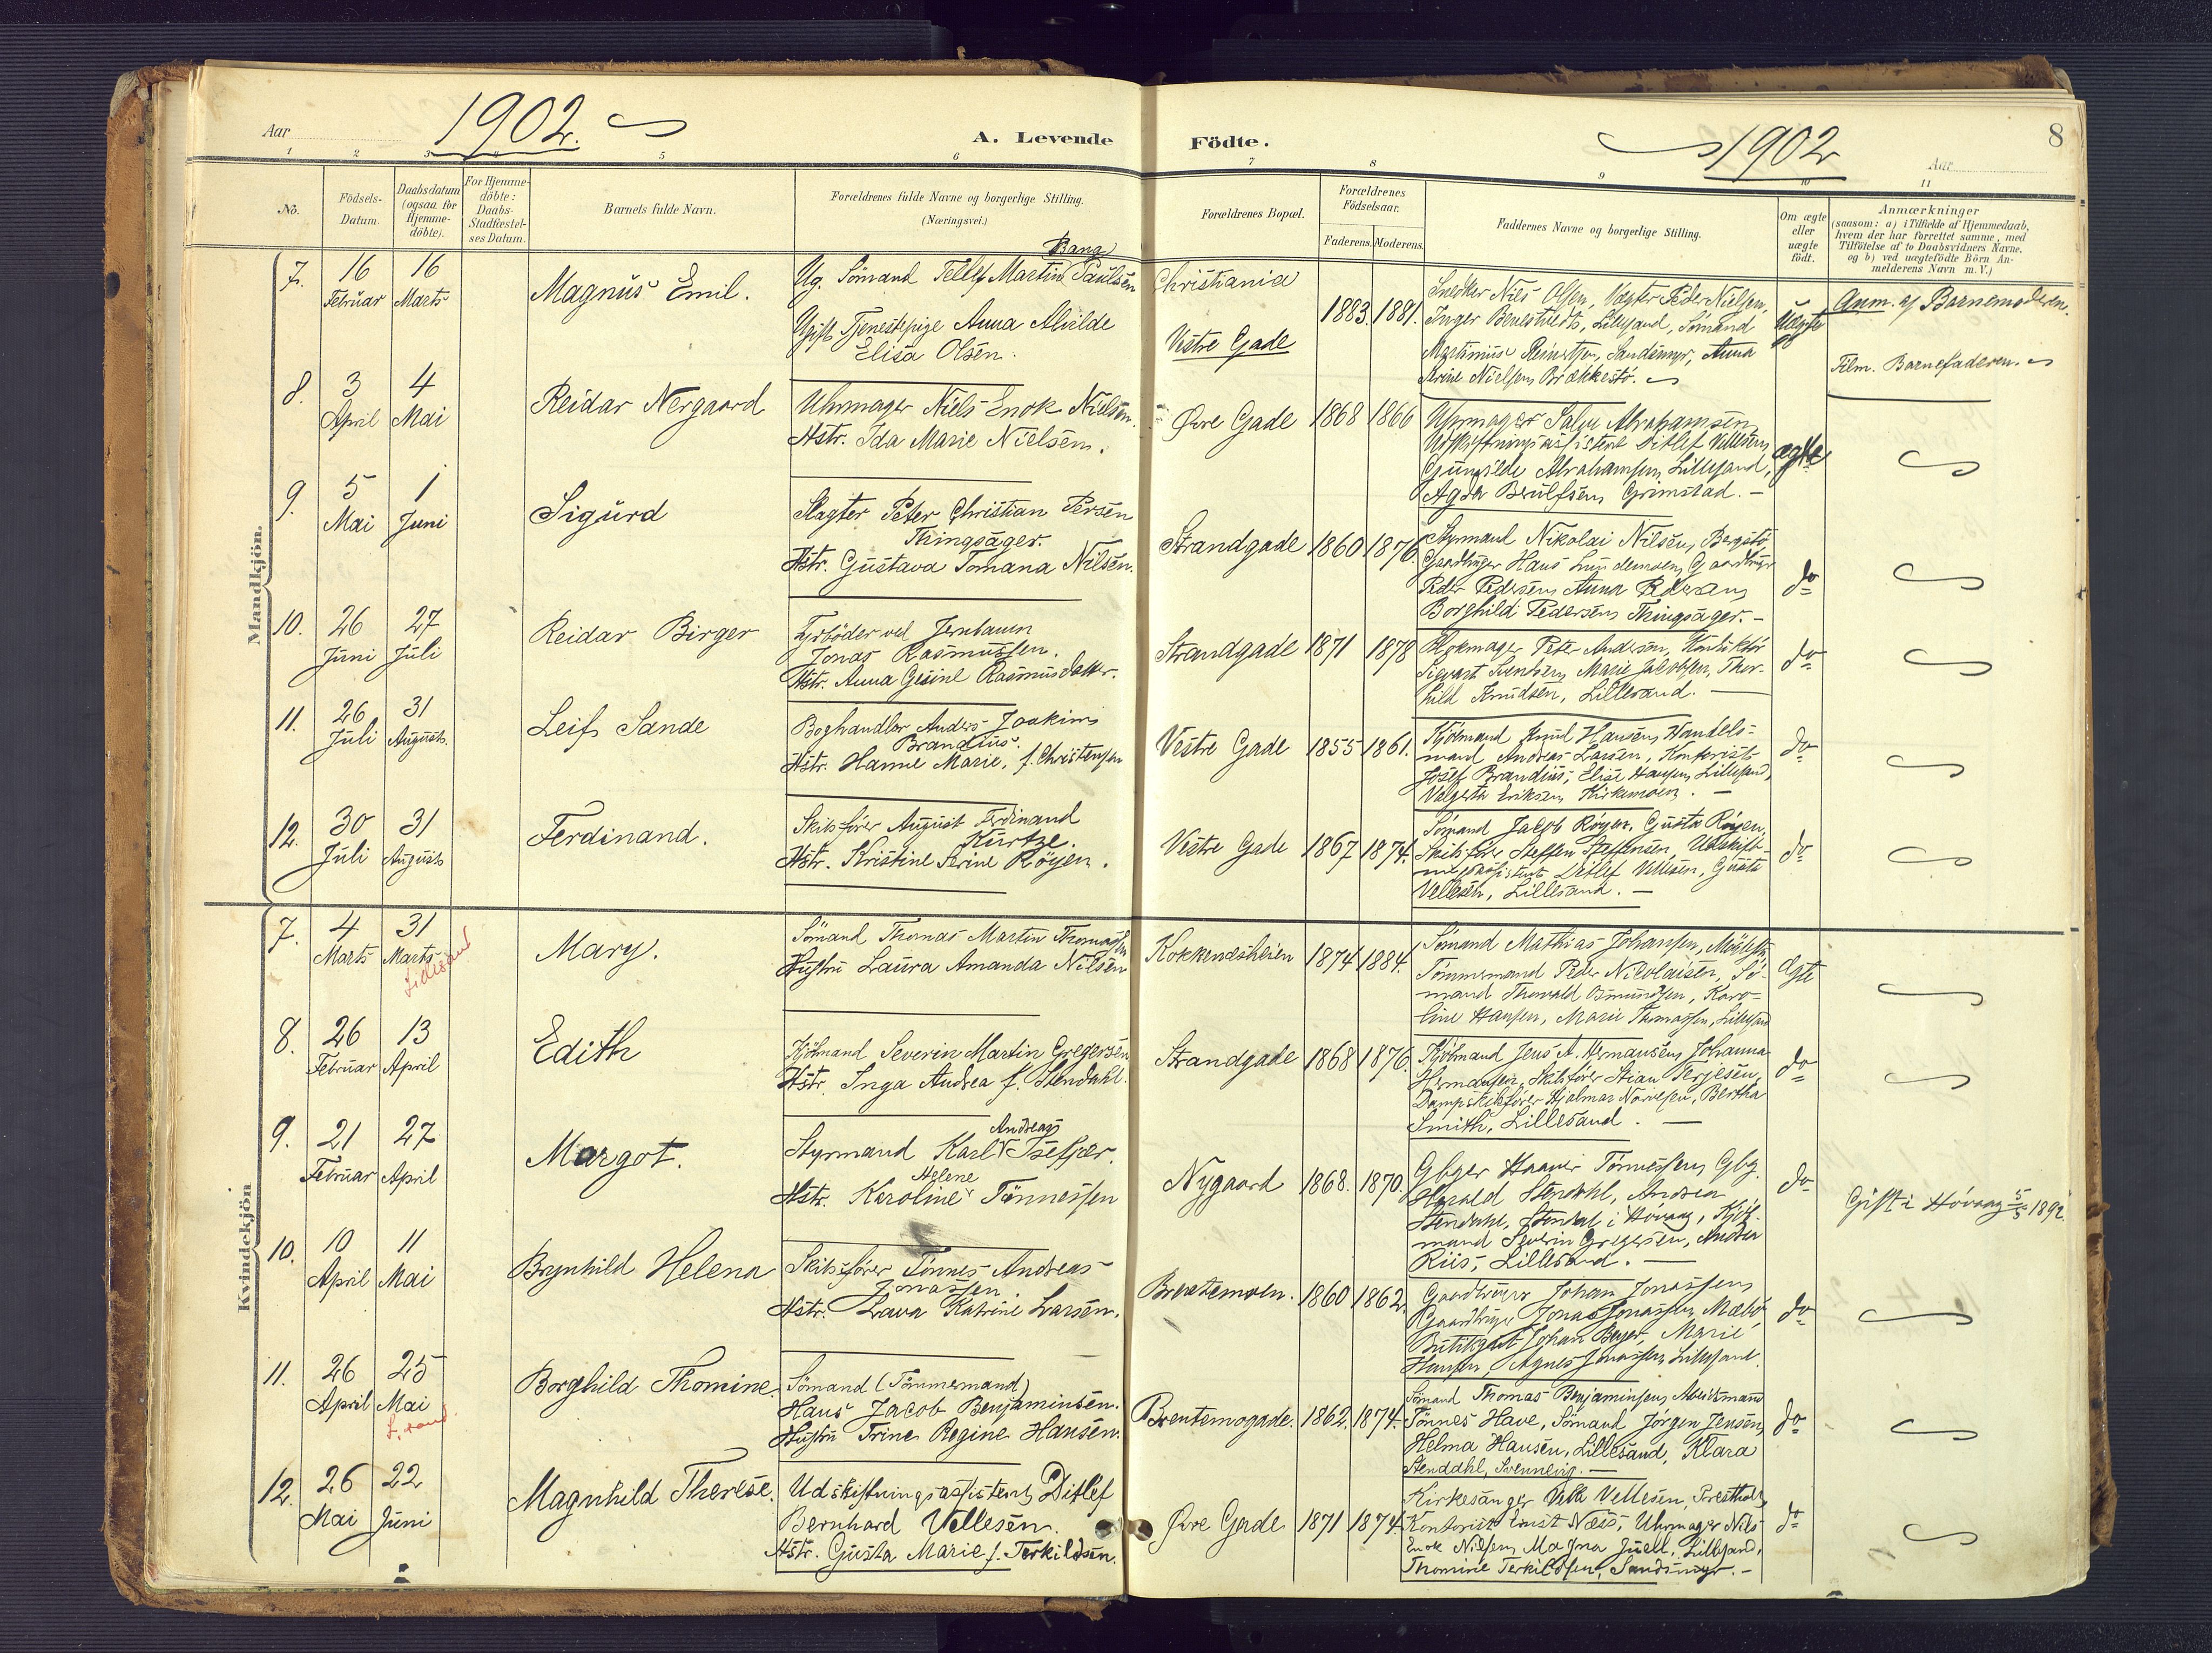 Aar 1902.
A. Levende Födte.
1902
Aar
8
1 2 3 4 5 6 7 8 9 10 11
No.
Födsels-Datum.
Daabsdatum (ogsaa for Hjemme-döbte).
For Hjemme-döbte: Daabs-Stadfæstel-ses Datum.
Barnets fulde Navn.
Forældrenes fulde Navne og borgerlige Stilling.
(Næringsvei.)
Forældrenes Bopæl.
Forældrenes Födselsaar.
Faderens. Moderens.
Faddernes Navne og borgerlige Stilling.
Om ægte eller uægte födt.
Anmærkninger
(saasom: a) i Tilfælde af Hjemmedaab,
hvem der har forrettet samme, med
Tilföielse af to Daabsvidners Navne.
og b) ved uægtefödte Börn An-
melderens Navn m. V.)
Mandkjön.
7. 16 Februar 16 Marts
Magnus Emil.
Bang
Ug. Sömand Tellef Martin Paulsen
Ugift Tjenestepige Anna Alvilde
Elisa Olsen.
Christiania
Vestre Gade
1883. 1881.
Snedker Niels Olsen, Vægter Peder Nielsen,
Inger Lillesand, Sömand
Martinius Reinertsen, Sandsmyr, Anna
Serine Nielsen Brækkestö.
Uægte
Anm. af Barnemoderen.
Barnefaderen.
8. 3 April 4 Mai
Reidar Nergaard
Uhrmager Niels Enok Nielsen.
Hstr. Ida Marie Nielsen.
Øvre Gade 1868 1866
Uhrmager Salve Abrahamsen,
Udskiftningsassistent Ditlef Vellesen,
Gunvilde Abrahamsen, Lillesand,
Agda Berulfsen, Grimstad.
ægte
9. 5 Mai 1 Juni
Sigurd
Slagter Peter Christian Persen
Thingsager.
Hstr. Gustava Tomana Nilsen.
Strandgade 1860 1876.
Styrmand Nikolai Nilsen,
Gaardbruger Hans Gaardbruger
Peder Pedersen, Anna Pedersen,
Borghild Pedersen, Thingsager.
do
10. 26 Juni 27 Juli
Reidar Birger
Fyrböder ved Jernbanen
Jonas Rasmussen.
Hstr. Anna Gesine Rasmusdatter.
Strandgade 1871 1878
Blokmager Peter Andersen, Konduktör
Marie Jacobsen, Thor-
hild Knudsen, Lillesand.
do
11. 26 Juli 31 August.
Leif Sande
Boghandler Anders Joakim
Brandius.
Hstr. Hanne Marie, f. Christensen
Vestre Gade 1855 1861.
Kjöbmand Knud Hansen, Handels-
mand Andreas Larsen, Kontorist
Josef Brandius, Elise Hansen, Lillesand,
Valgerta Eriksen, Kirkemoen.
do
12. 30 Juli 31 August
Ferdinand.
Skibsförer August Ferdinand
Kurtze.
Hstr. Kristine Serine Röyen.
Vestre Gade 1867 1874.
Sömand Jacob Röyen, Gusta Röyen,
Skibsförer Steffen Steffensen, Udskift-
ningsassistent Ditlef Vellesen, Gusta
Vellesen, Lillesand.
do
Kvindekjön
7. 4 Marts 31 Marts
Lillesand
Mary.
Sömand Thomas Martin Thomassen
Hustru Laura Amanda Nilsen
Kokkenesheien 1874 1884.
Sömand Mathias Johansen,
Tömmermand Peder Nicolaisen, Sö-
mand Thorvald Osmundsen, Karo-
line Hansen, Marie Thomassen, Lillesand
Ægte
8. 26 Februar 13 April
Edith
Kjöbmand Severin Martin Gregersen
Hstr. Inga Andrea f. Stendahl.
Strandgade 1868 1876.
Kjöbmand Jens A. Hermansen, Johanna
Hermansen, Skibsförer Stian Terjesen,
Dampskibsförer Hjalmar Norvesen, Bertha
Smith, Lillesand.
do
9. 21 Februar 27 April
Margot.
Andreas
Styrmand Karl Isefjær.
Helene
Hstr. Karoline Tönnessen
Nygaard 1868. 1870.
Gbger Haaver Tönnessen, Gbg.
Harald Stendahl, Andrea
Stendahl, Stendal i Hövaag, Kjöb-
mand Severin Gregersen, Andrea
Riis, Lillesand.
do
Gift i Hövaag 5/5 1892.
10. 10 April 11 Mai
Brynhild Helena
Skibsförer Tönnes Andreas
Jonassen
Hstr. Lava Katrine Larsen.
Brentemoen. 1860 1862.
Gaardbruger Johan Jonassen,
Gaardbruger Jonas Jonassen, Mæbö,
Johan Beyer, Marie
Hansen, Agnes Jonassen, Lillesand.
do
11. 26 April 25 Mai
L.sand.
Borghild Thomine.
Sömand (Tömmermand)
Hans Jacob Benjaminsen.
Hustru Trine Regine Hansen.
Brentemogade. 1862. 1874.
Sömand Thomas Benjaminsen, Arbeidsmand
Tönnes Have, Sömand Jörgen Jensen,
Helma Hansen, Lillesand, Klara
Stenddhl, Svennevig.
do
12. 26 Mai 22 Juni
Magnhild Therese.
Udskiftningsassistent Ditlef
Bernhard Vellesen.
Hstr. Gusta Marie f. Terkildsen.
Øvre Gade 1871 1874.
Kirkesanger Vellesen,
Kontorist Ernst Næss, Uhrmager Nils
Enok Nielsen, Magna Juell, Lillesand,
Thomine Terkildsen, Sandsmyr.
do